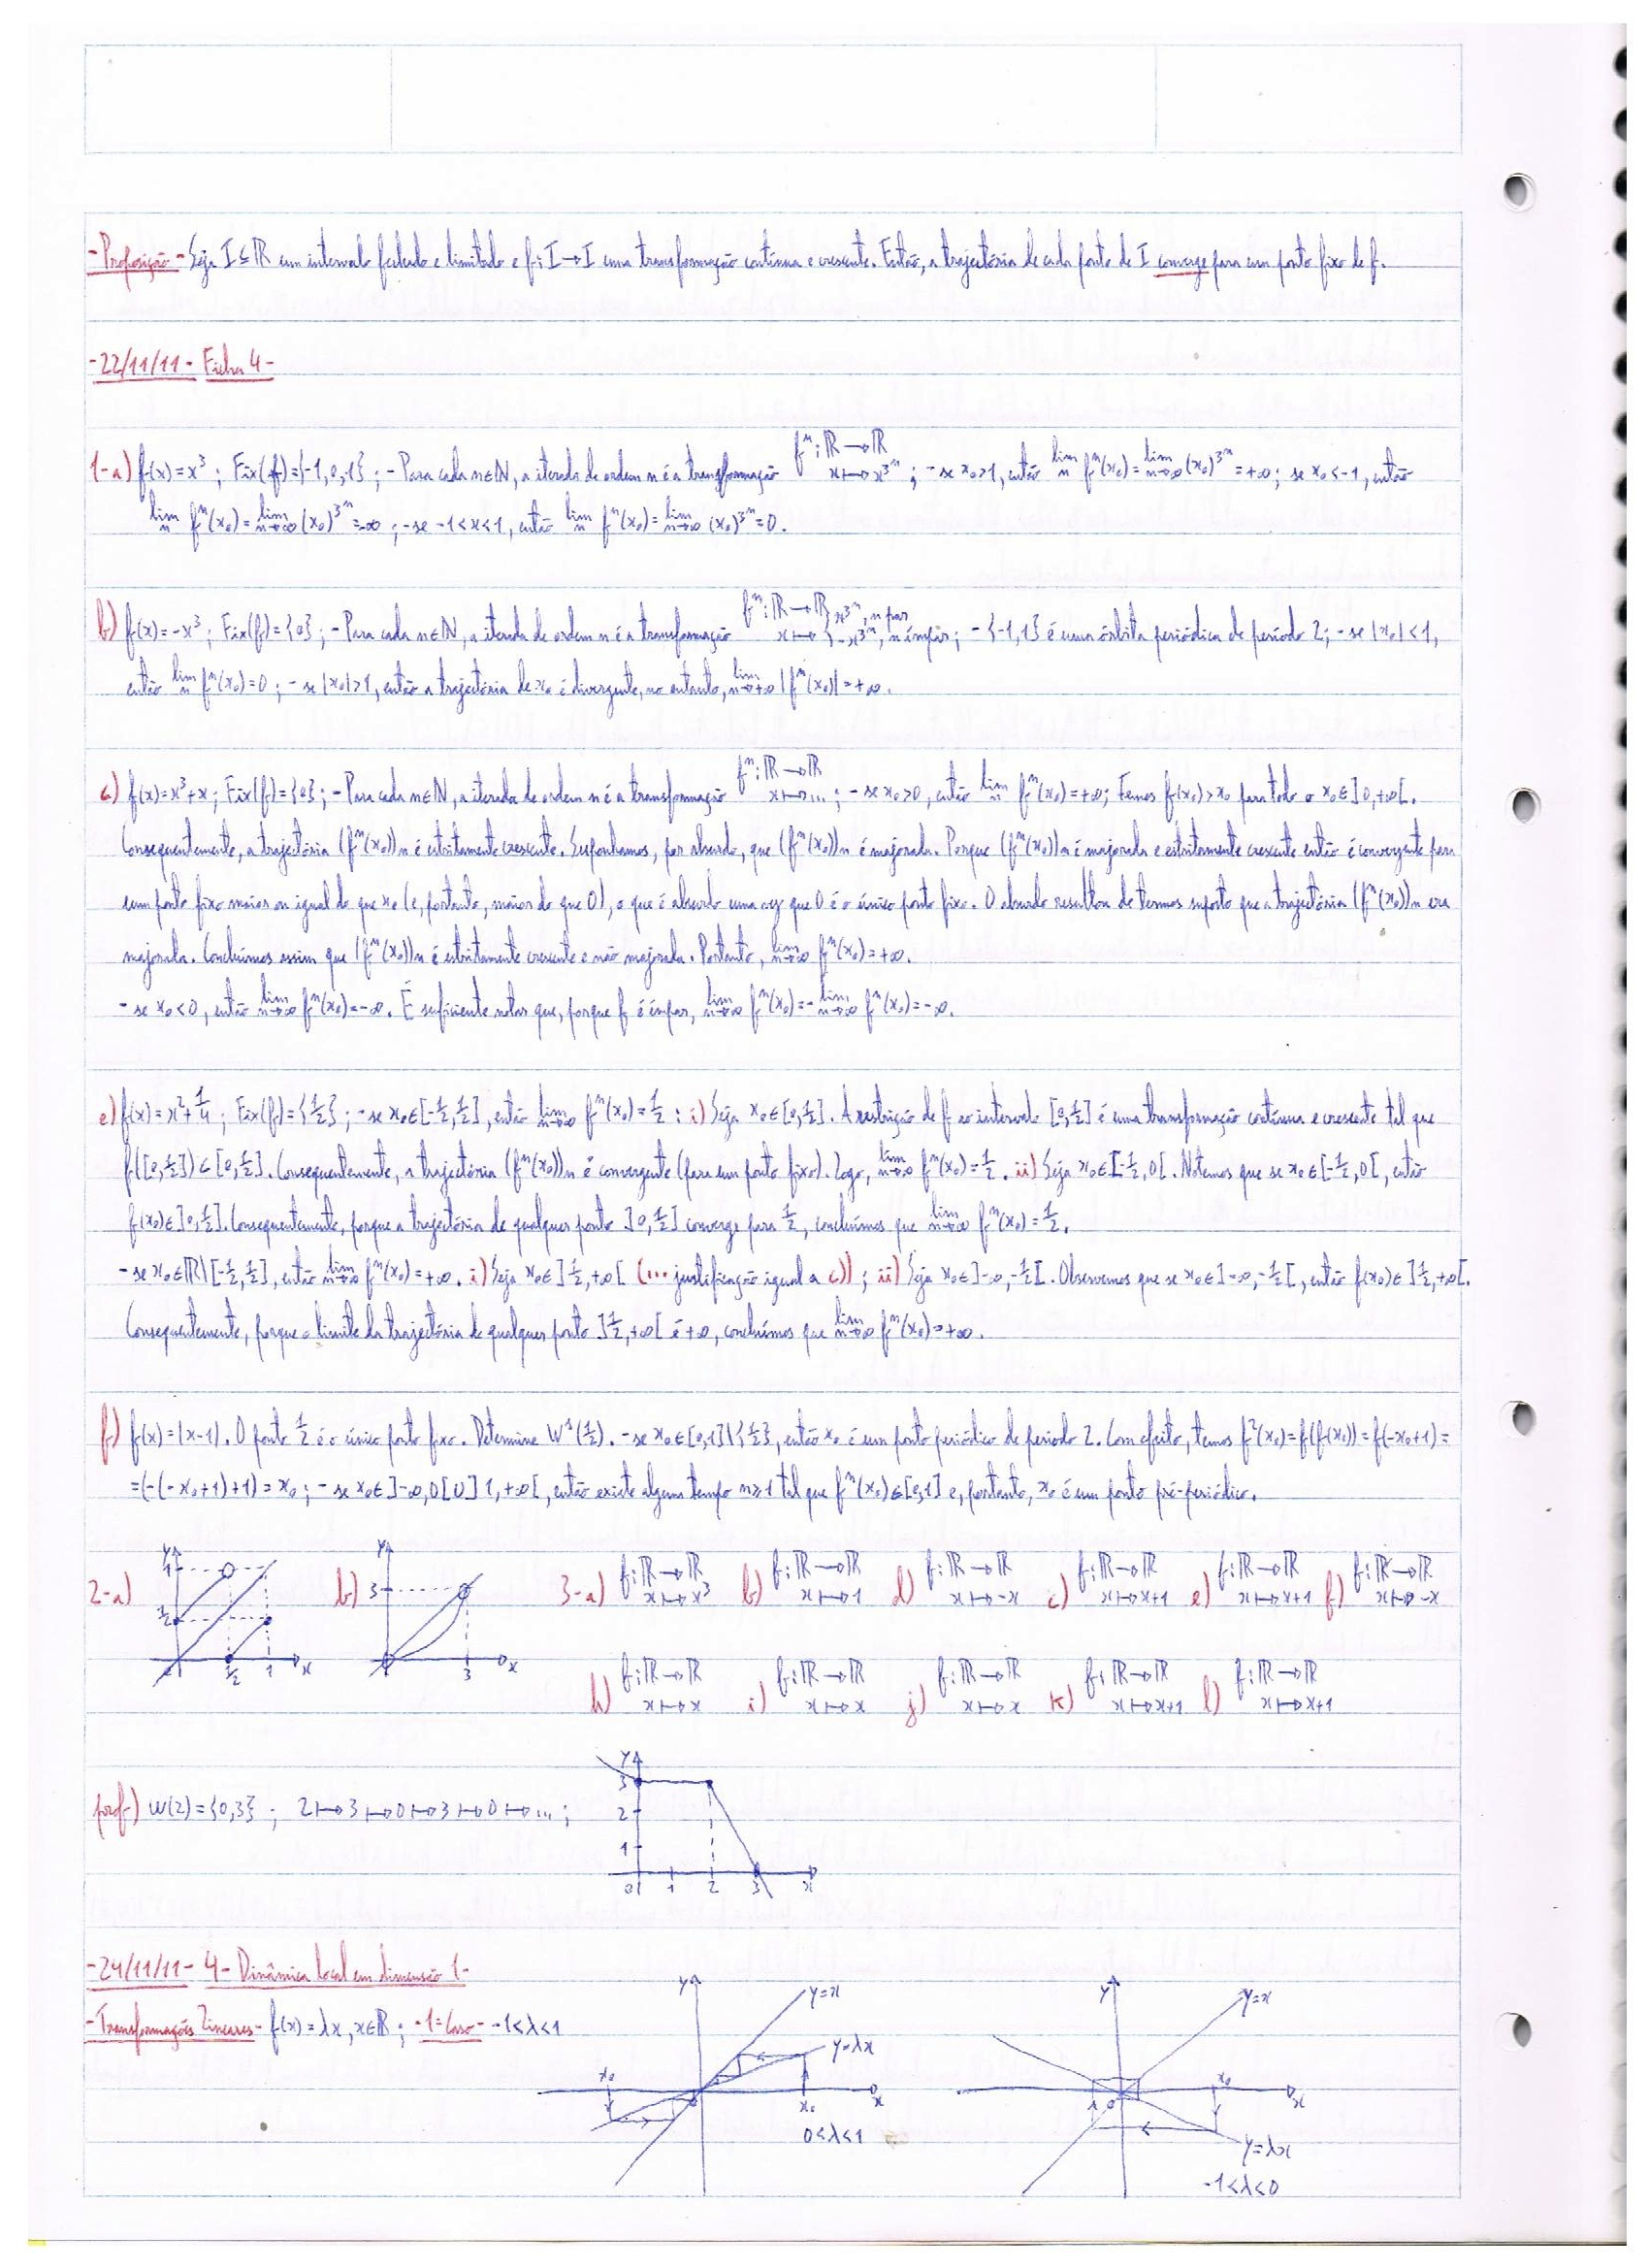 -Proposição- Seja I⊆ℝ um intervalo fechado e limitado e f: I→I uma transformação contínua e crescente. Então, a trajectória de cada ponto de I converge para um ponto fixo de f.
-22/11/11- Ficha 4-
1-a) f(x)=x³; Fix(f)={-1,0,1}; -Para cada n∈ℕ, a iterada de ordem n é a transformação fⁿ: ℝ→ℝ x↦x^3ⁿ; -se x₀>1, então lim_n fⁿ(x₀)=lim_n→∞ (x₀)^3ⁿ=+∞; se x₀<-1, então
lim_n fⁿ(x₀)=lim_n→∞ (x₀)^3ⁿ=-∞; -se -1<x<1, então lim_n fⁿ(x₀)=lim_n→∞ (x₀)^3ⁿ=0.
b) f(x)=-x³; Fix(f)={0}; -Para cada n∈ℕ, a iterada de ordem n é a transformação fⁿ: ℝ→ℝ x↦{x^3ⁿ, n par -x^3ⁿ, n ímpar; -{-1,1} é uma órbita periódica de período 2; -se |x₀|<1,
então lim_n fⁿ(x₀)=0; -se |x₀|>1, então a trajectória de x₀ é divergente, no entanto, lim_n→+∞ |fⁿ(x₀)|=+∞.
c) f(x)=x³+x; Fix(f)={0}; -Para cada n∈ℕ, a iterada de ordem n é a transformação fⁿ: ℝ→ℝ x↦...; -se x₀>0, então lim_n fⁿ(x₀)=+∞; Temos f(x₀)>x₀ para todo o x₀∈]0,+∞[.
Consequentemente, a trajectória (fⁿ(x₀))n é estritamente crescente. Suponhamos, por absurdo, que (fⁿ(x₀))n é majorada. Porque (fⁿ(x₀))n é majorada e estritamente crescente então é convergente para
um ponto fixo maior ou igual do que x₀ (e, portanto, maior do que 0), o que é absurdo uma vez que 0 é o único ponto fixo. O absurdo resultou de termos suposto que a trajectória (fⁿ(x₀))n era
majorada. Concluímos assim que (fⁿ(x₀))n é estritamente crescente e não majorada. Portanto, lim_n→∞ fⁿ(x₀)=+∞.
-se x₀<0, então lim_n→∞ fⁿ(x₀)=-∞. É suficiente notar que, porque f é ímpar, lim_n→∞ fⁿ(x₀)=-lim_n→∞ fⁿ(x₀)=-∞.
e) f(x)=x²+1/4; Fix(f)={1/2}; -se x₀∈[-1/2,1/2], então lim_n→∞ fⁿ(x₀)=1/2: i) Seja x₀∈[0,1/2]. A restrição de f ao intervalo [0,1/2] é uma transformação contínua e crescente tal que
f([0,1/2])⊂[0,1/2]. Consequentemente, a trajectória (fⁿ(x₀))n é convergente (para um ponto fixo). Logo, lim_n→∞ fⁿ(x₀)=1/2. ii) Seja x₀∈[-1/2,0[. Notemos que se x₀∈[-1/2,0[, então
f(x₀)∈]0,1/2]. Consequentemente, porque a trajectória de qualquer ponto ]0,1/2] converge para 1/2, concluímos que lim_n→∞ fⁿ(x₀)=1/2.
-se x₀∈ℝ\[-1/2,1/2], então lim_n→∞ fⁿ(x₀)=+∞. i) Seja x₀∈]1/2,+∞[ (... justificação igual a c)); ii) Seja x₀∈]-∞,-1/2[. Observemos que se x₀∈]-∞,-1/2[, então f(x₀)∈]1/2,+∞[.
Consequentemente, porque o limite da trajectória de qualquer ponto ]1/2,+∞[ é +∞, concluímos que lim_n→∞ fⁿ(x₀)=+∞.
f) f(x)=|x-1|. O ponto 1/2 é o único ponto fixo. Determine Wˢ(1/2). -se x₀∈[0,1]\{1/2}, então x₀ é um ponto periódico de período 2. Com efeito, temos f²(x₀)=f(f(x₀))=f(-x₀+1)=
=(-(-x₀+1)+1)=x₀; -se x₀∈]-∞,0[∪]1,+∞[, então existe algum tempo n≥1 tal que fⁿ(x₀)∈[0,1] e, portanto, x₀ é um ponto pré-periódico.
2-a) y 1 1/2 0 1/2 1 x b) y 3 3 x 3-a) f: ℝ→ℝ x↦x³ b) f: ℝ→ℝ x↦1 d) f: ℝ→ℝ x↦-x c) f: ℝ→ℝ x↦x+1 e) f: ℝ→ℝ x↦x+1 f) f: ℝ→ℝ x↦-x
h) f: ℝ→ℝ x↦x i) f: ℝ→ℝ x↦x j) f: ℝ→ℝ x↦x k) f: ℝ→ℝ x↦x+1 l) f: ℝ→ℝ x↦x+1
prof-) W(2)={0,3}; 2↦3↦0↦3↦0↦...; y 3 2 1 0 1 2 3 x
-24/11/11- 4- Dinâmica local em dimensão 1-
-Transformações Lineares- f(x)=λx, x∈ℝ; -1º Caso- -1<λ<1
y y=x y=λx x₀ x₀ x 0<λ<1
y y=x x₀ 0 x y=λx -1<λ<0